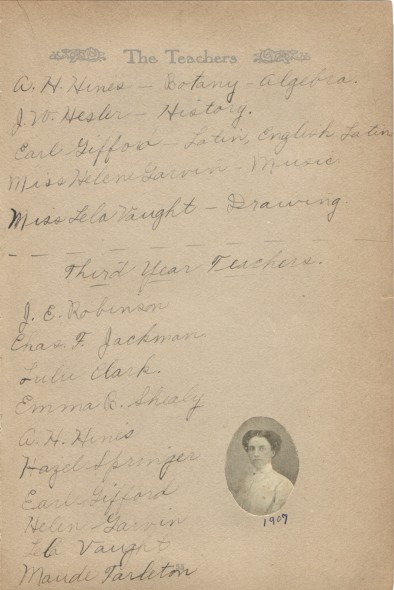 The Teachers
A. H. Hines - Botany - Algebra.
J. W. Hesler - History.
Earl Gifford - Latin, English Latin
Miss Helene Garvin - Music
Miss Lela Vaught - Drawing.
Third Year Teachers.
J. E. Robinson
Chas. F. Jackman
Lulu Clark.
Emma B. Shealy
A. H. Hines
Hazel Springer
Earl Gifford
Helen Garvin
Lela Vaught
Maude Tarleton
1907